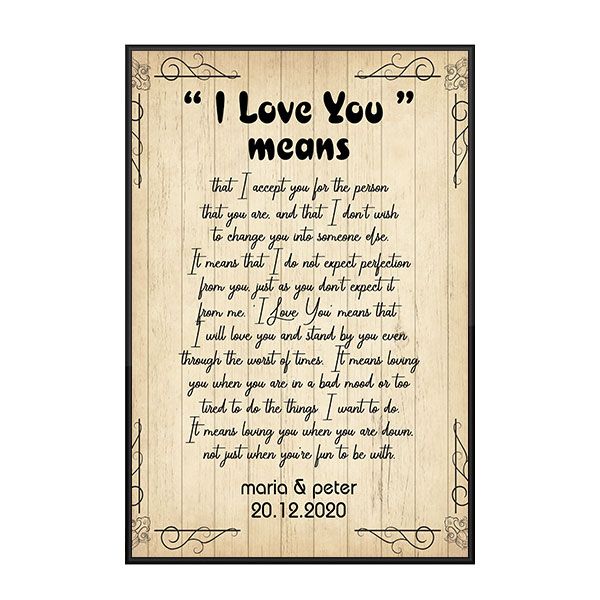 “ I Love You ”
means
that I accept you for the person
that you are, and that I don't wish
to change you into someone else.
It means that I do not expect perfection
from you, just as you don't expect it
from me. 'I Love You' means that
I will love you and stand by you even
through the worst of times. It means loving
you when you are in a bad mood or too
tired to do the things I want to do.
It means loving you when you are down,
not just when you're fun to be with.
maria & peter
20.12.2020